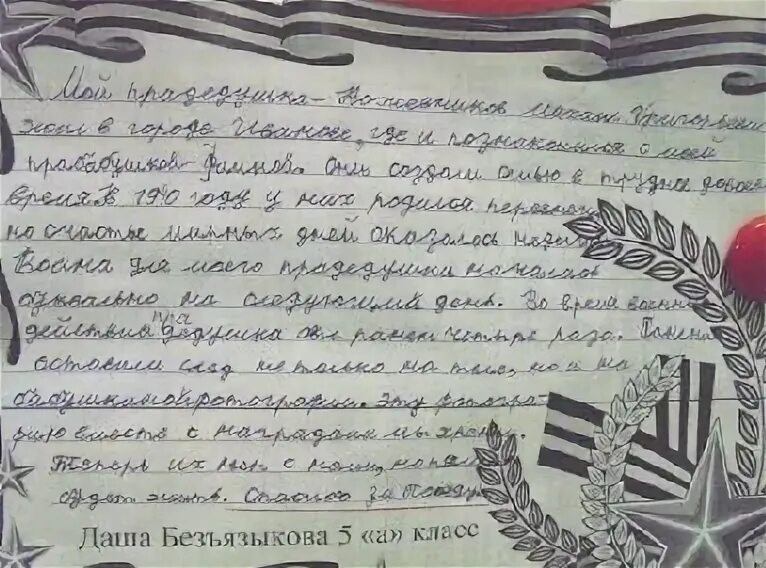 Мой прадедушка - Кожевников Михаил Григорьевич
жил в городе Иванове, где и познакомился с моей
прабабушкой Фаиной. Они создали семью в трудное довоен
время. В 1940 году у них родился первенец
но счастье мирных дней оказалось
Война для моего прадедушки началась
буквально на следующий день. Во время военн
действий прадедушка был ранен четыре раза.
оставили след не только на теле, но и на
бабушкиной фотографии. Эту фотогра-
фию вместе с наградами мы храним.
Теперь их нет с нами, но память
будет жить. Спасибо за Победу
Даша Безъязыкова 5 «а» класс